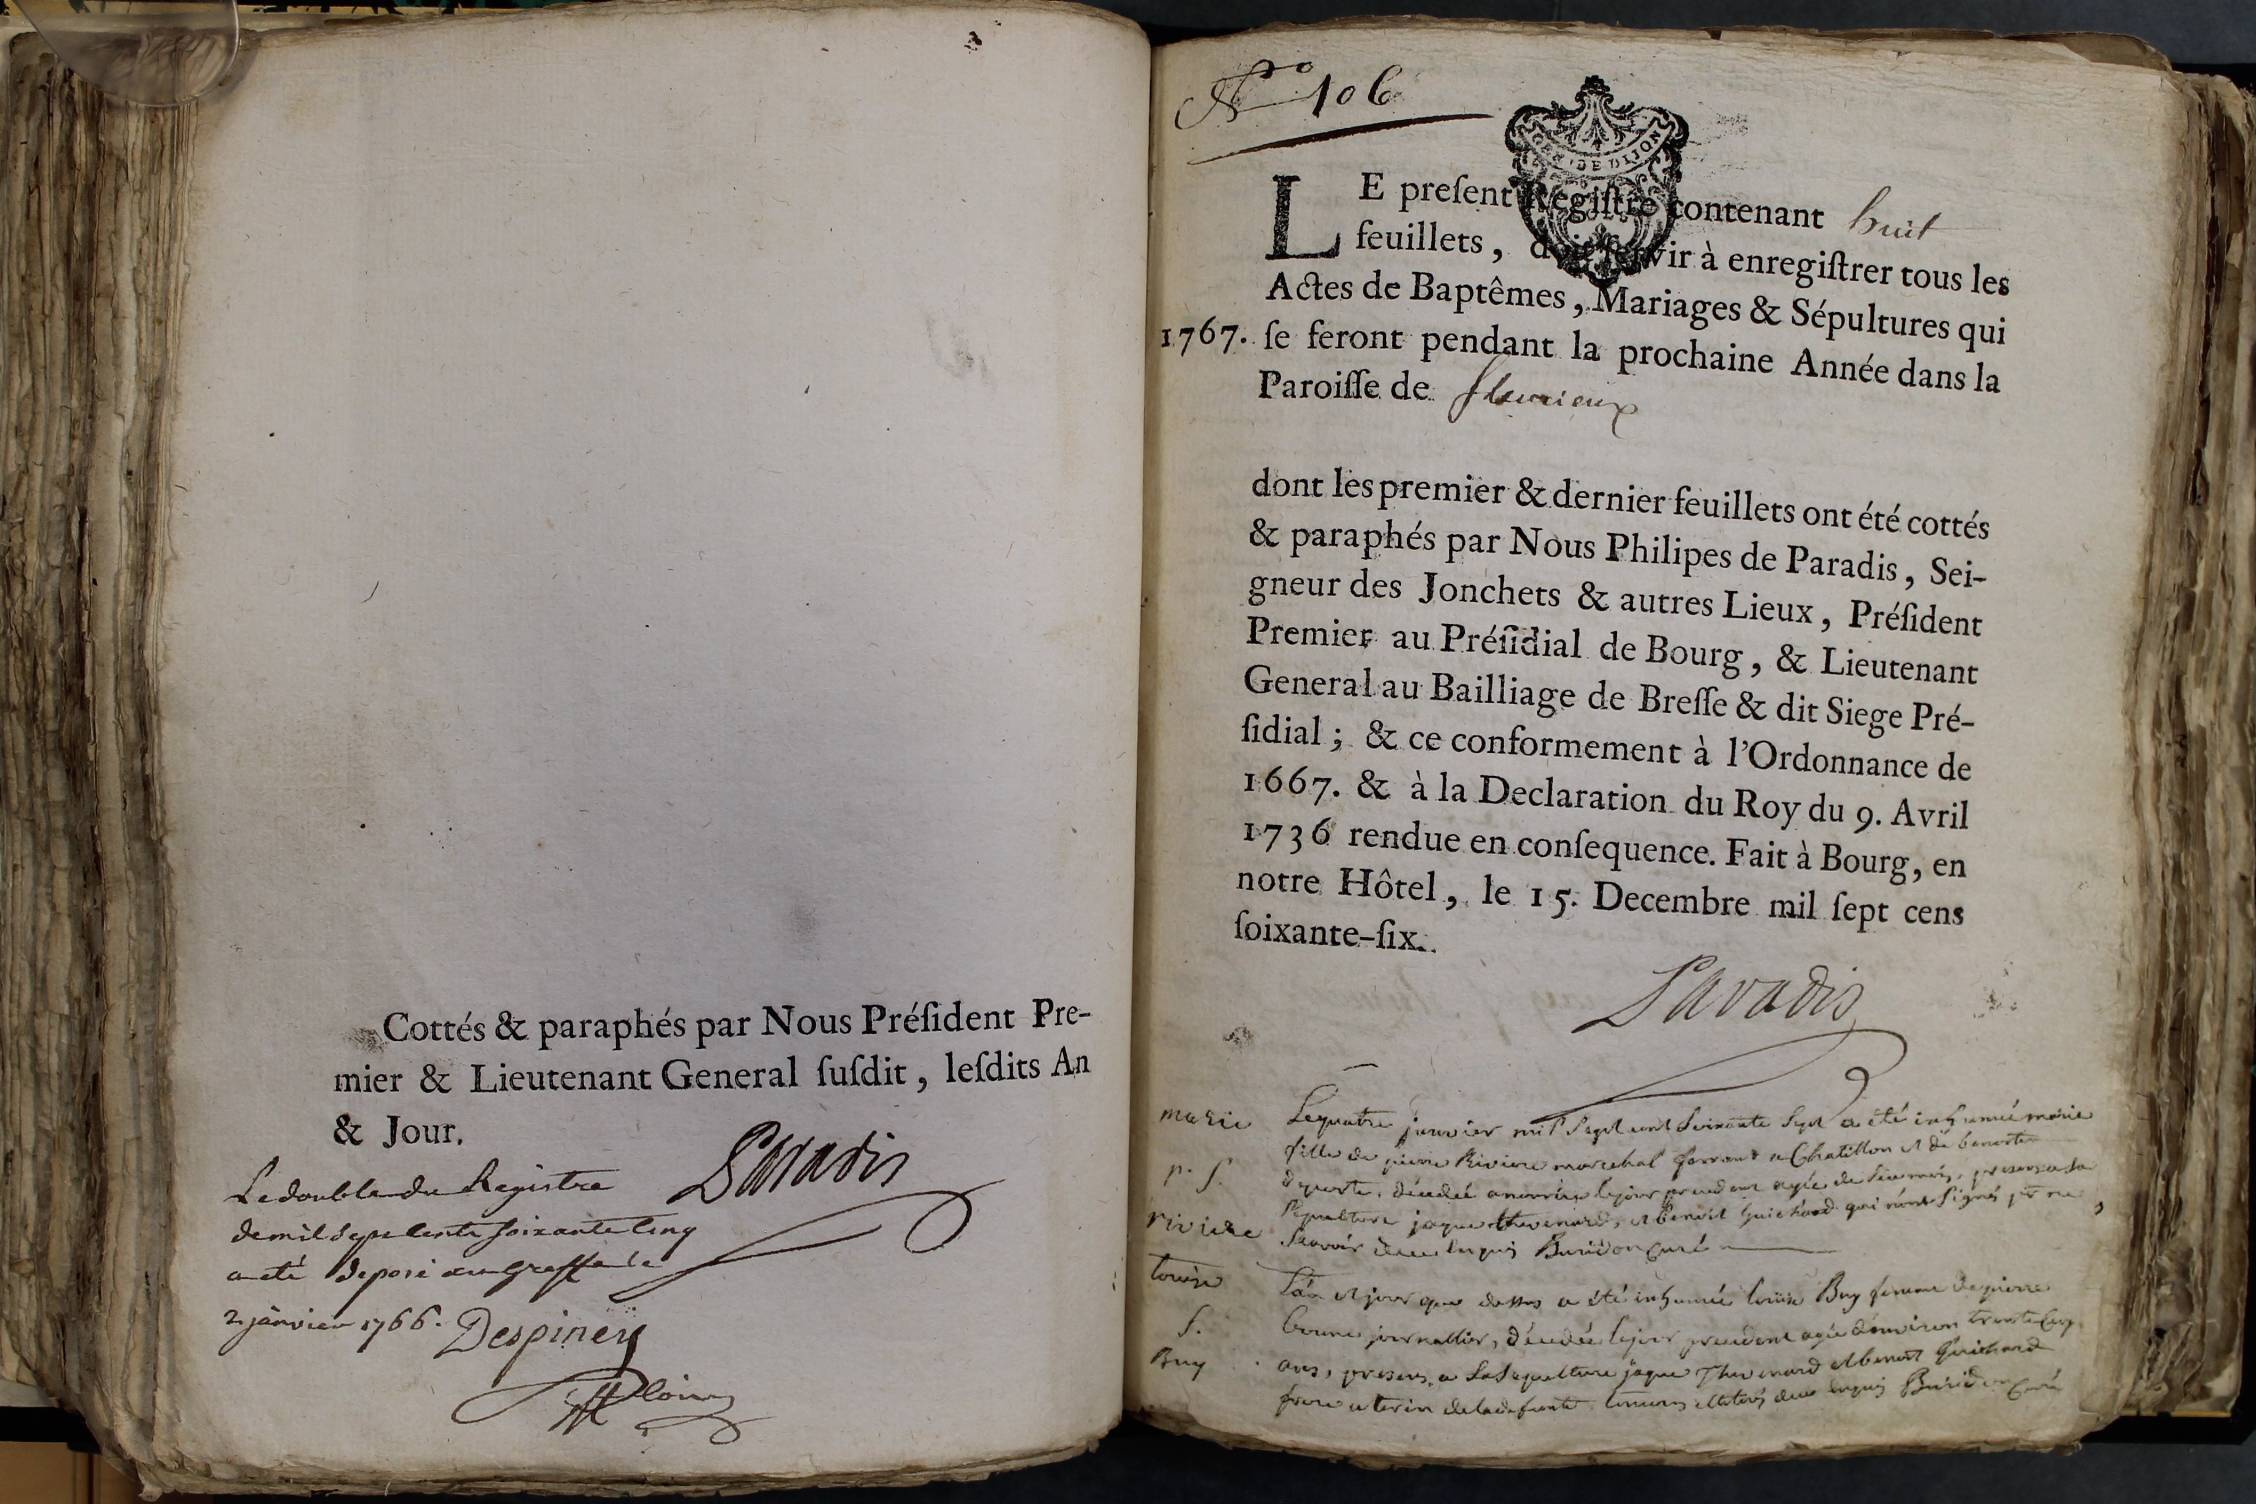 Cottés & paraphés par Nous Préſident Pre-
mier & Lieutenant General ſuſdit, leſdits An
& Jour.
Paradis
Le double du Registre
de mil sept cents soixante cinq
a eté deposé au Greffe le
2 janvier 1766.
Despiney
No 106
GEN DE DIJON
LE preſent Regiſtre contenant huit
feuillets, doit ſervir à enregiſtrer tous les
Actes de Baptêmes, Mariages & Sépultures qui
1767. ſe feront pendant la prochaine Année dans la
Paroiſſe de fleurieux
dont les premier & dernier feuillets ont été cottés
& paraphés par Nous Philipes de Paradis, Sei-
gneur des Jonchets & autres Lieux, Préſident
Premier au Préſidial de Bourg, & Lieutenant
General au Bailliage de Breſſe & dit Siege Pré-
ſidial; & ce conformement à l'Ordonnance de
1667. & à la Declaration du Roy du 9. Avril
1736 rendue en conſequence. Fait à Bourg, en
notre Hôtel, le 15. Decembre mil ſept cens
ſoixante-ſix.
Paradis
marie
p. s.
riviere
Le quatre janvier mil sept cent soixante sept a été inhumée marie
fille de pierre Riviere marechal ferrant a Chatillon et de benoite
decedée le jour precedent agée de mois, presens a sa
sepulture jaque thevenard, et benoit Guichard qui n'ont signés pr ne
scavoir de ce enquis Buridon Curé
Louise
s.
Buy
L'an et jour que dessus a été inhumée louise Buy femme de pierre
journallier, décedée le jour precedent agée d'environ trente cinq
ans, presens a sa sepulture jaque Thevenard et benoit Guichard
frere uterin de la defunte enquis Buridon Curé